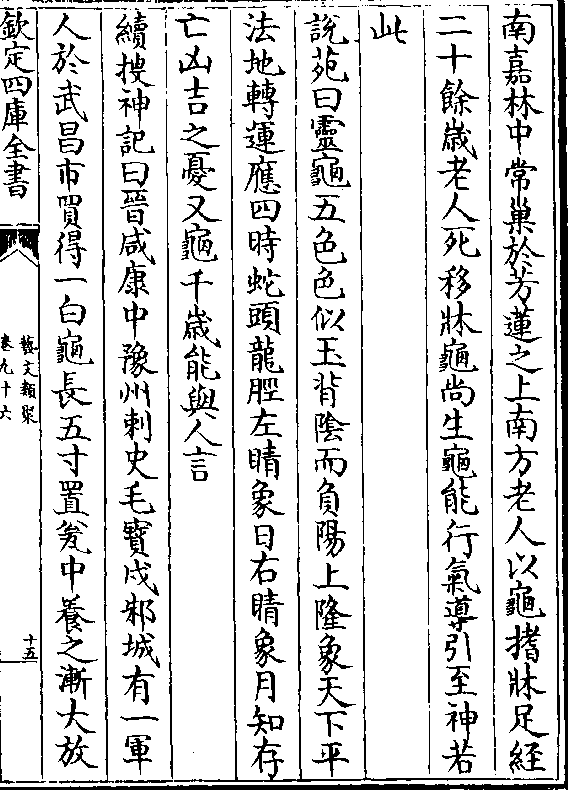 南嘉林中常巢於芳蓮之上南方老人以龜搘牀足經
二十餘歳老人死移牀龜尚生龜能行氣導引至神若
此
說苑曰靈龜五色色似玉背隂而負陽上隆象天下平
法地轉運應四時蛇頭龍脛左睛象日右睛象月知存
亡凶吉之憂又龜千歳能與人言
續搜神記曰晉咸康中豫州刺史毛寳戍邾城有一軍
人於武昌市買得一白龜長五寸置瓮中養之漸大放
欽定四庫全書
藝文類聚
卷九十六
十五